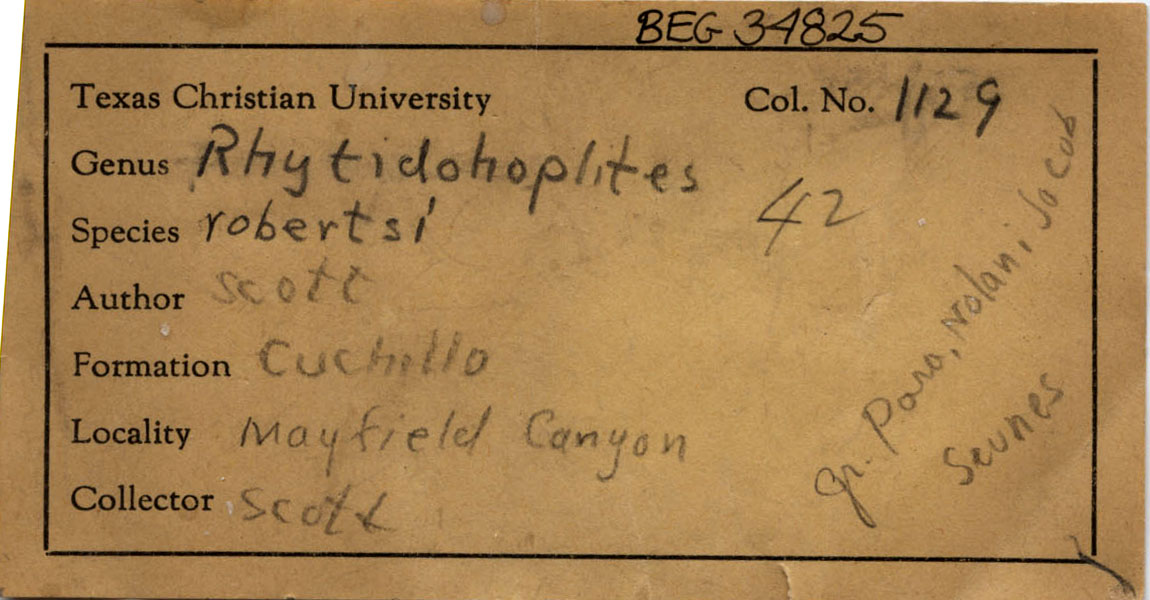 BEG 34825
Texas Christian University Col. No. 1129
Genus Rhytidohoplites
42
Species robertsi
Author Scott
Formation Cuchillo
Locality Mayfield Canyon
Collector Scott
gr. Para, Nolani Jacob
Seunes